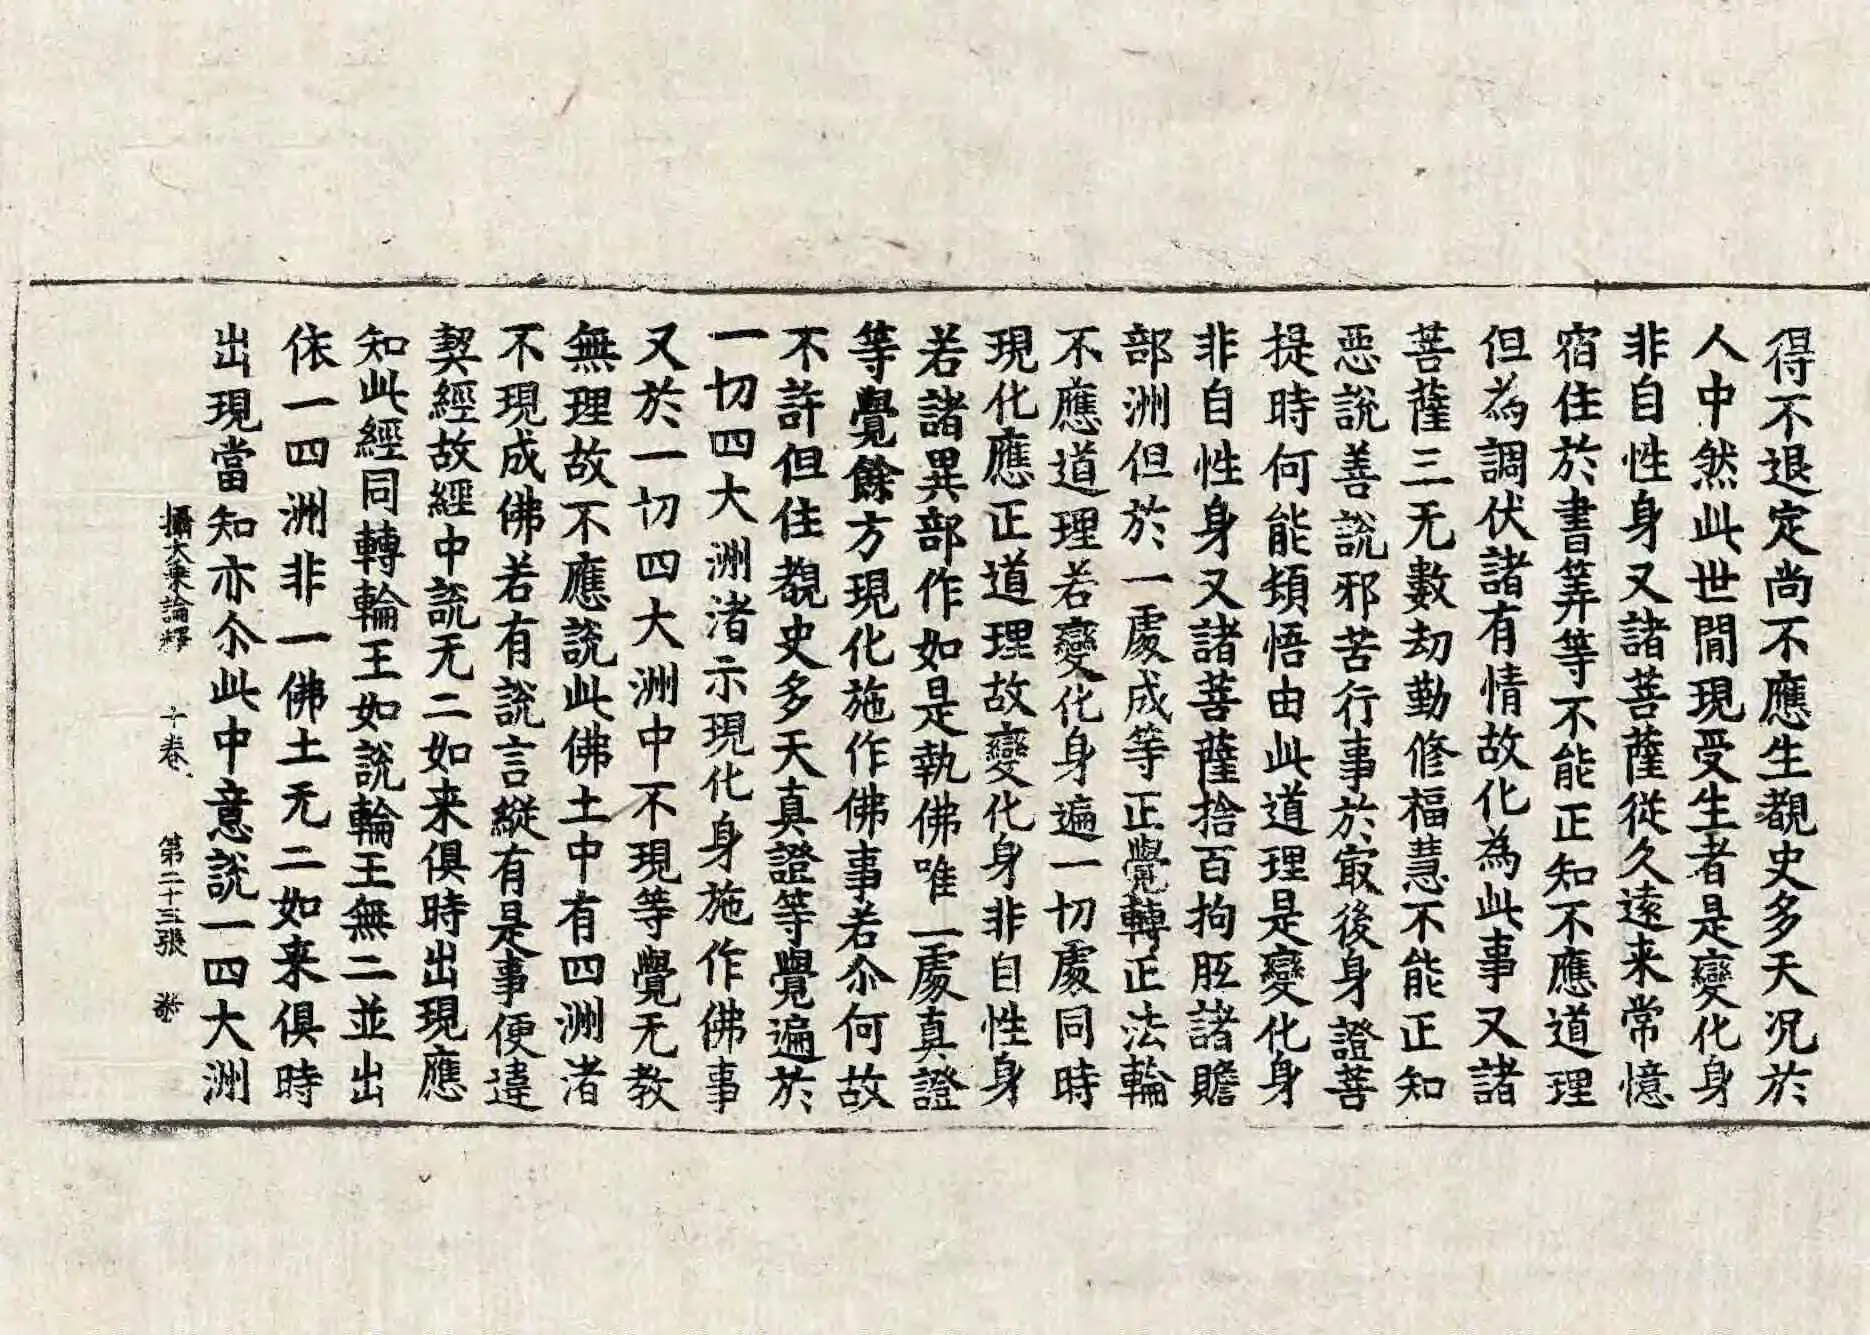 得不退定尚不應生覩史多天况於
人中然此世間現受生者是變化身
非自性身又諸菩薩從久遠来常憶
宿住於書筭等不能正知不應道理
但為調伏諸有情故化為此事又諸
菩薩三无數劫勤修福慧不能正知
惡說善說邪苦行事於㝡後身證菩
提時何能頓悟由此道理是變化身
非自性身又諸菩薩捨百拘胝諸贍
部洲但於一處成等正覺轉正法輪
不應道理若變化身遍一切處同時
現化應正道理故變化身非自性身
若諸異部作如是執佛唯一處真證
等覺餘方現化施作佛事若尒何故
不許但住覩史多天真證等覺遍於
一切四大洲渚示現化身施作佛事
又於一切四大洲中不現等覺无教
無理故不應說此佛土中有四洲渚
不現成佛若有說言縱有是事便違
契經故經中說无二如来俱時出現應
知此經同轉輪王如說輪王無二並出
依一四洲非一佛土无二如来俱時
出現當知亦尒此中意說一四大洲
攝大乘論釋 十卷 第二十三張